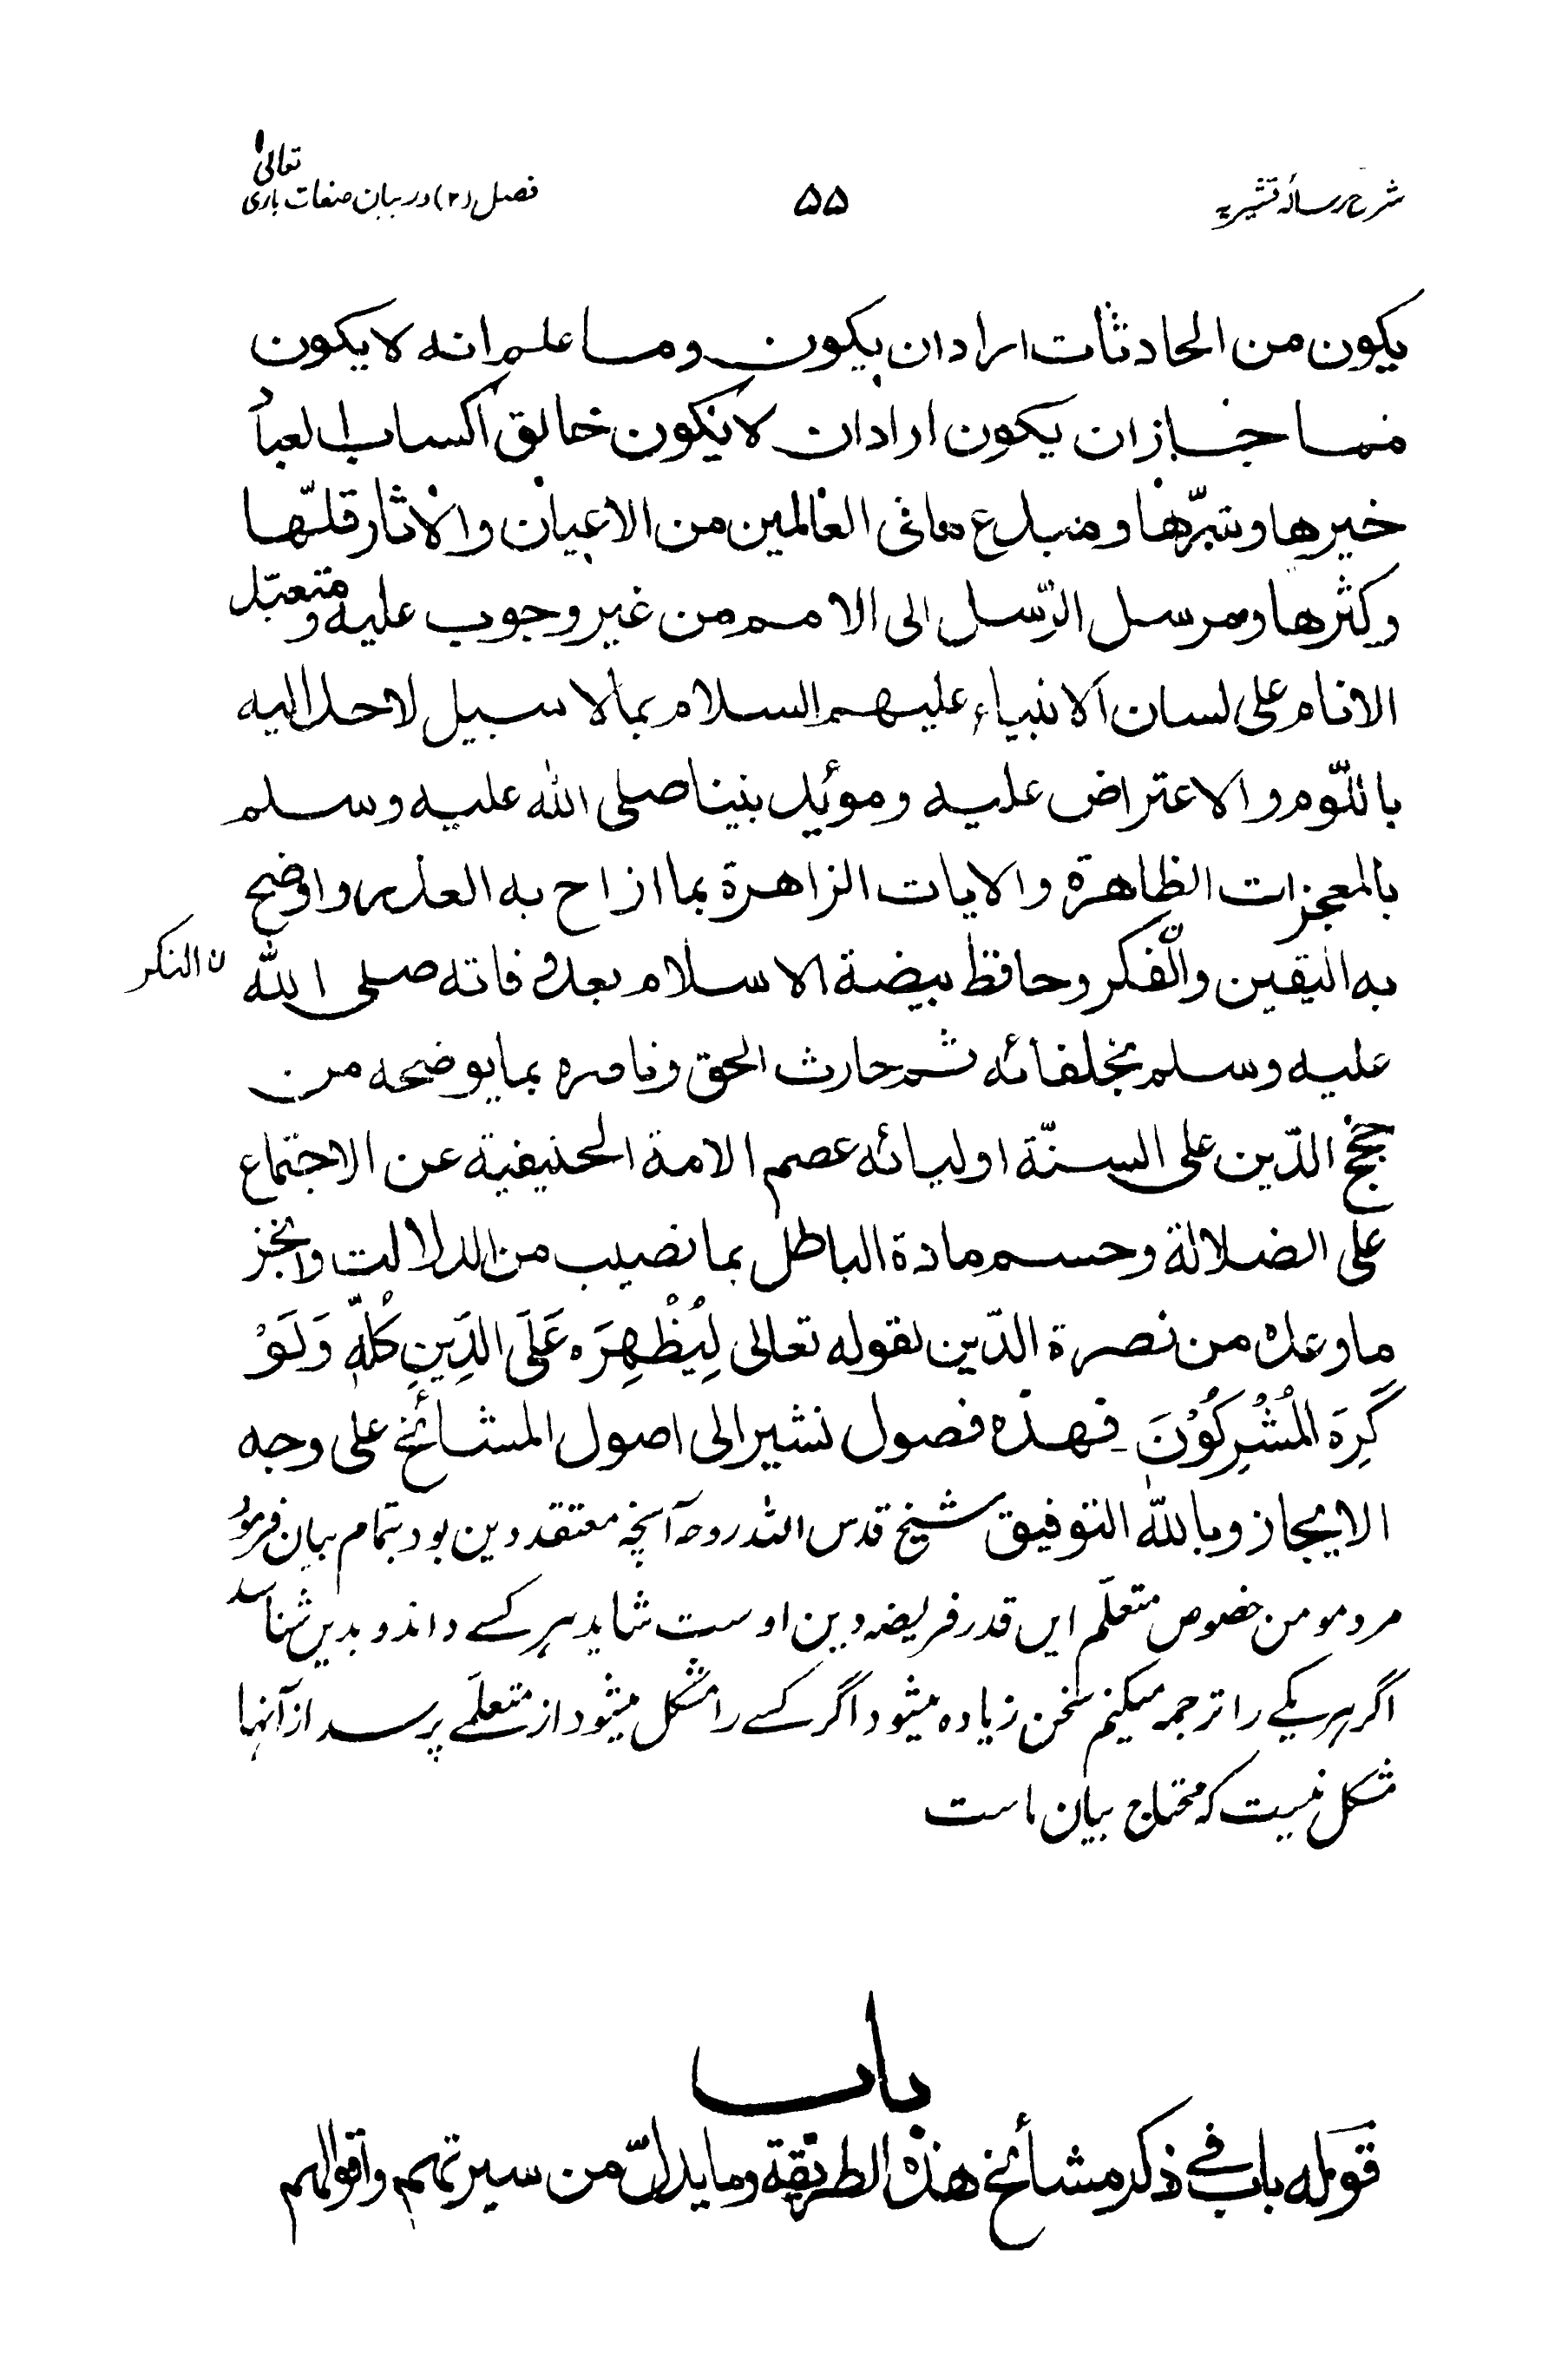 شرح رسالہ قشیریہ
۵۵
فصل (۲) در بیان صفات باری تعالیٰ
یکون من الحادثات ارادان یکون وما علم انه لا یکون
مما جازان یکون ارادان لا یکون خالق اکساب العباد
خیرها وشرّها ومبدع مافی العالمین من الاعیان والاثار قلّها
وکثرها ومرسل الرّسل الی الامم من غیر وجوب علیه ومتعبّد
الانام علی لسان الانبیاء علیهم السلام بمالا سبیل لاحد الیه
باللّوم والاعتراض علیه وموئید نبینا صلی الله علیه وسلم
بالمعجزات الظاهرة والایات الزاهرة بما ازاح به العذر واوضح
به الیقین والّفکر وحافظ بیضة الاسلام بعد وفاته صلی الله
ن النکر
علیه وسلم بخلفائه ثم حارث الحق وناصره بما یوضحه من
حجج الدّین علی السنّة اولیائه عصم الامة الحنیفیة عن الاجتماع
علی الضلالة وحسم مادة الباطل بما نصیب من الدلالت وانجز
ماوعد من نصرة الدّین لقوله تعالی لِیُظْهِرَه عَلَی الدِّینِ کُلِّهٖ وَلَوْ
کَرِهَ الْمُشْرِکُوْنَ فهذه فصول نشیر الی اصول المشائخ علی وجه
الایجاز وبالله التوفیق شیخ قدس اللہ روحہ آنچہ معتقد دین بود بتمام بیان فرمود
مرد مومن خصوص متعلّم ایں قدر فریضہ دین اوست شاید ہر کسے داند و بدیں شناسد
اگر ہر یکے را ترجمہ میکنم سخن زیادہ میشود اگر کسے را مشکل میشود از متعلّمے پرسد از آنہا
مشکل نیست کہ محتاج بیان است
باب
قوله باب فی ذکر مشائخ هذه الطریقة وما یدلّ من سیرتهم واقوالهم